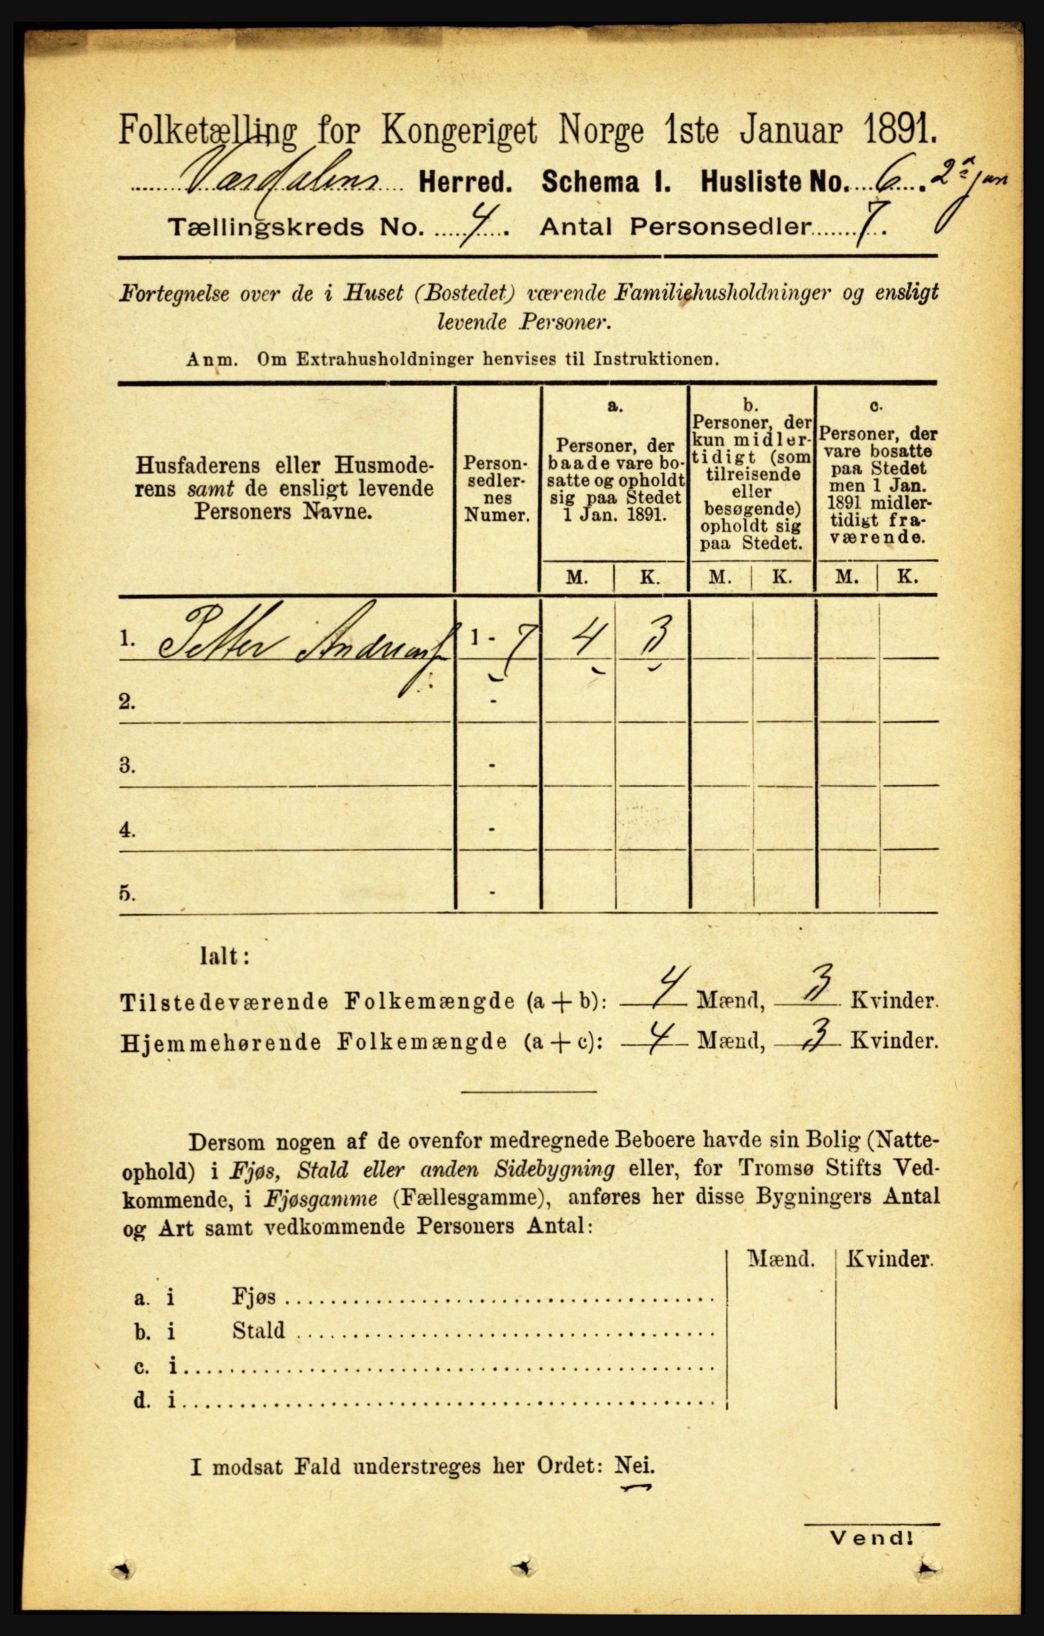 Folketælling for Kongeriget Norge 1ste Januar 1891.
Værdalens Herred. Schema I. Husliste No. 6. 2d jan
Tællingskreds No. 4. Antal Personsedler 7.
Fortegnelse over de i Huset (Bostedet) værende Familiehusholdninger og ensligt
levende Personer.
Anm. Om Extrahusholdninger henvises til Instruktionen.
Husfaderens eller Husmode-
rens samt de ensligt levende
Personers Navne.
Person-
sedler-
nes
Numer.
a.
Personer, der
baade vare bo-
satte og opholdt
sig paa Stedet
1 Jan. 1891.
b.
Personer, der
kun midler-
tidigt (som
tilreisende
eller
besøgende)
opholdt sig
paa Stedet.
c.
Personer, der
vare bosatte
paa Stedet
men 1 Jan.
1891 midler-
tidigt fra-
værende.
M. K. M. K. M. K.
1. Petter Andreas 1 - 7 4 3
2. -
3. -
4. -
5. -
Ialt:
Tilstedeværende Folkemængde (a + b): 4 Mænd, 3 Kvinder.
Hjemmehørende Folkemængde (a + c): 4 Mænd, 3 Kvinder.
Dersom nogen af de ovenfor medregnede Beboere havde sin Bolig (Natte-
ophold) i Fjøs, Stald eller anden Sidebygning eller, for Tromsø Stifts Ved-
kommende, i Fjøsgamme (Fællesgamme), anføres her disse Bygningers Antal
og Art samt vedkommende Personers Antal:
Mænd. Kvinder.
a. i Fjøs
b. i Stald
c. i
d. i
I modsat Fald understreges her Ordet: Nei.
Vend!